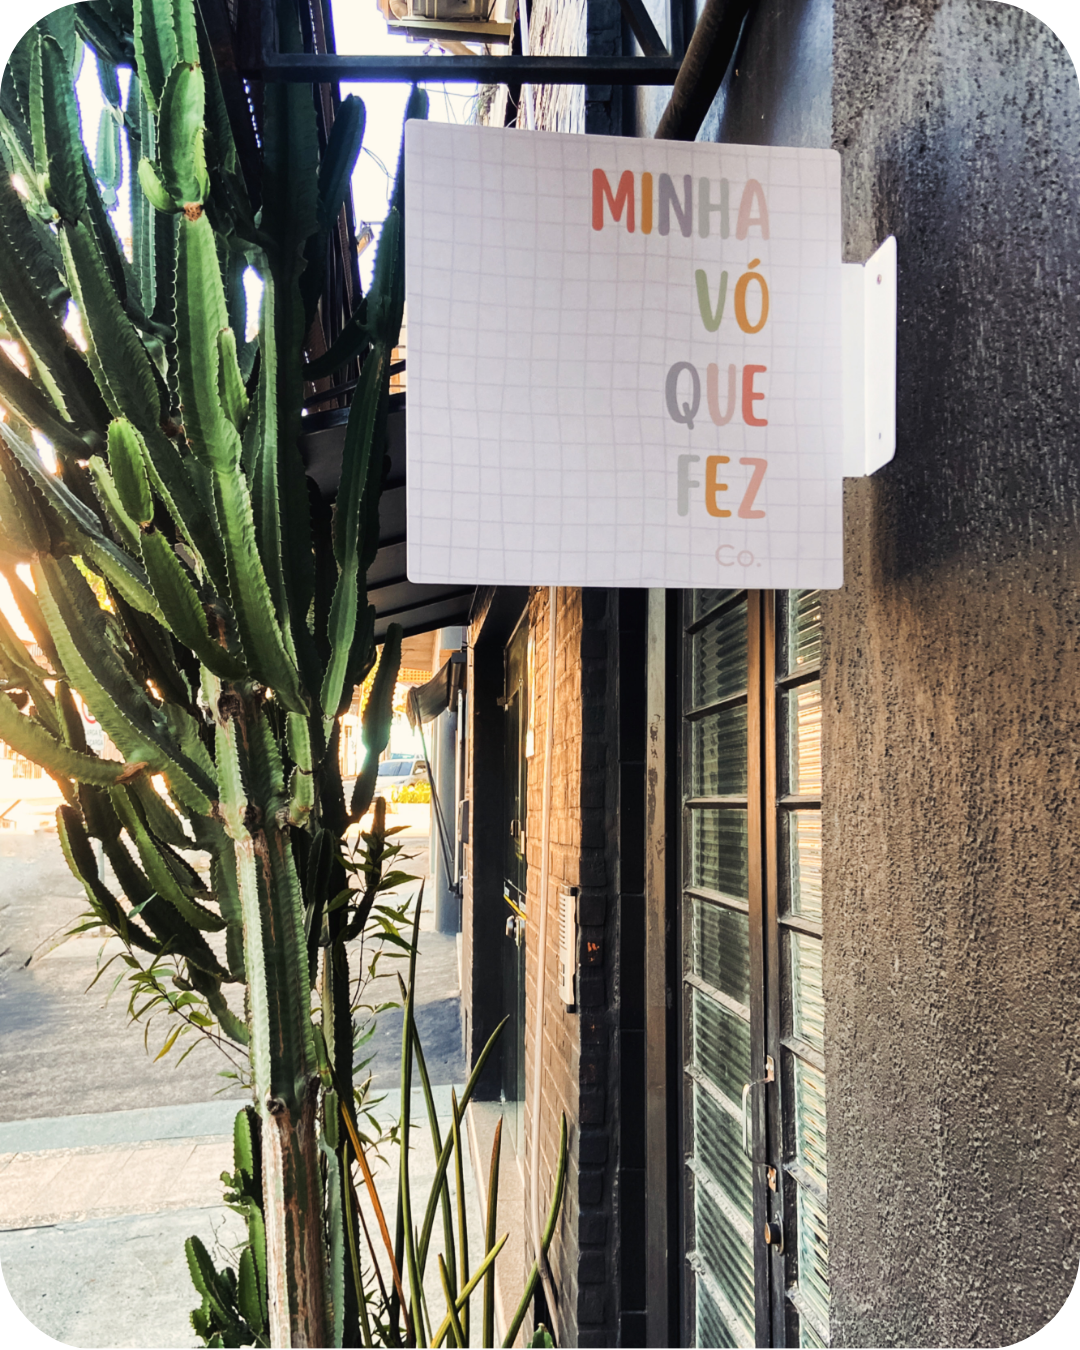 MINHA
VÓ
QUE
FEZ
Co.